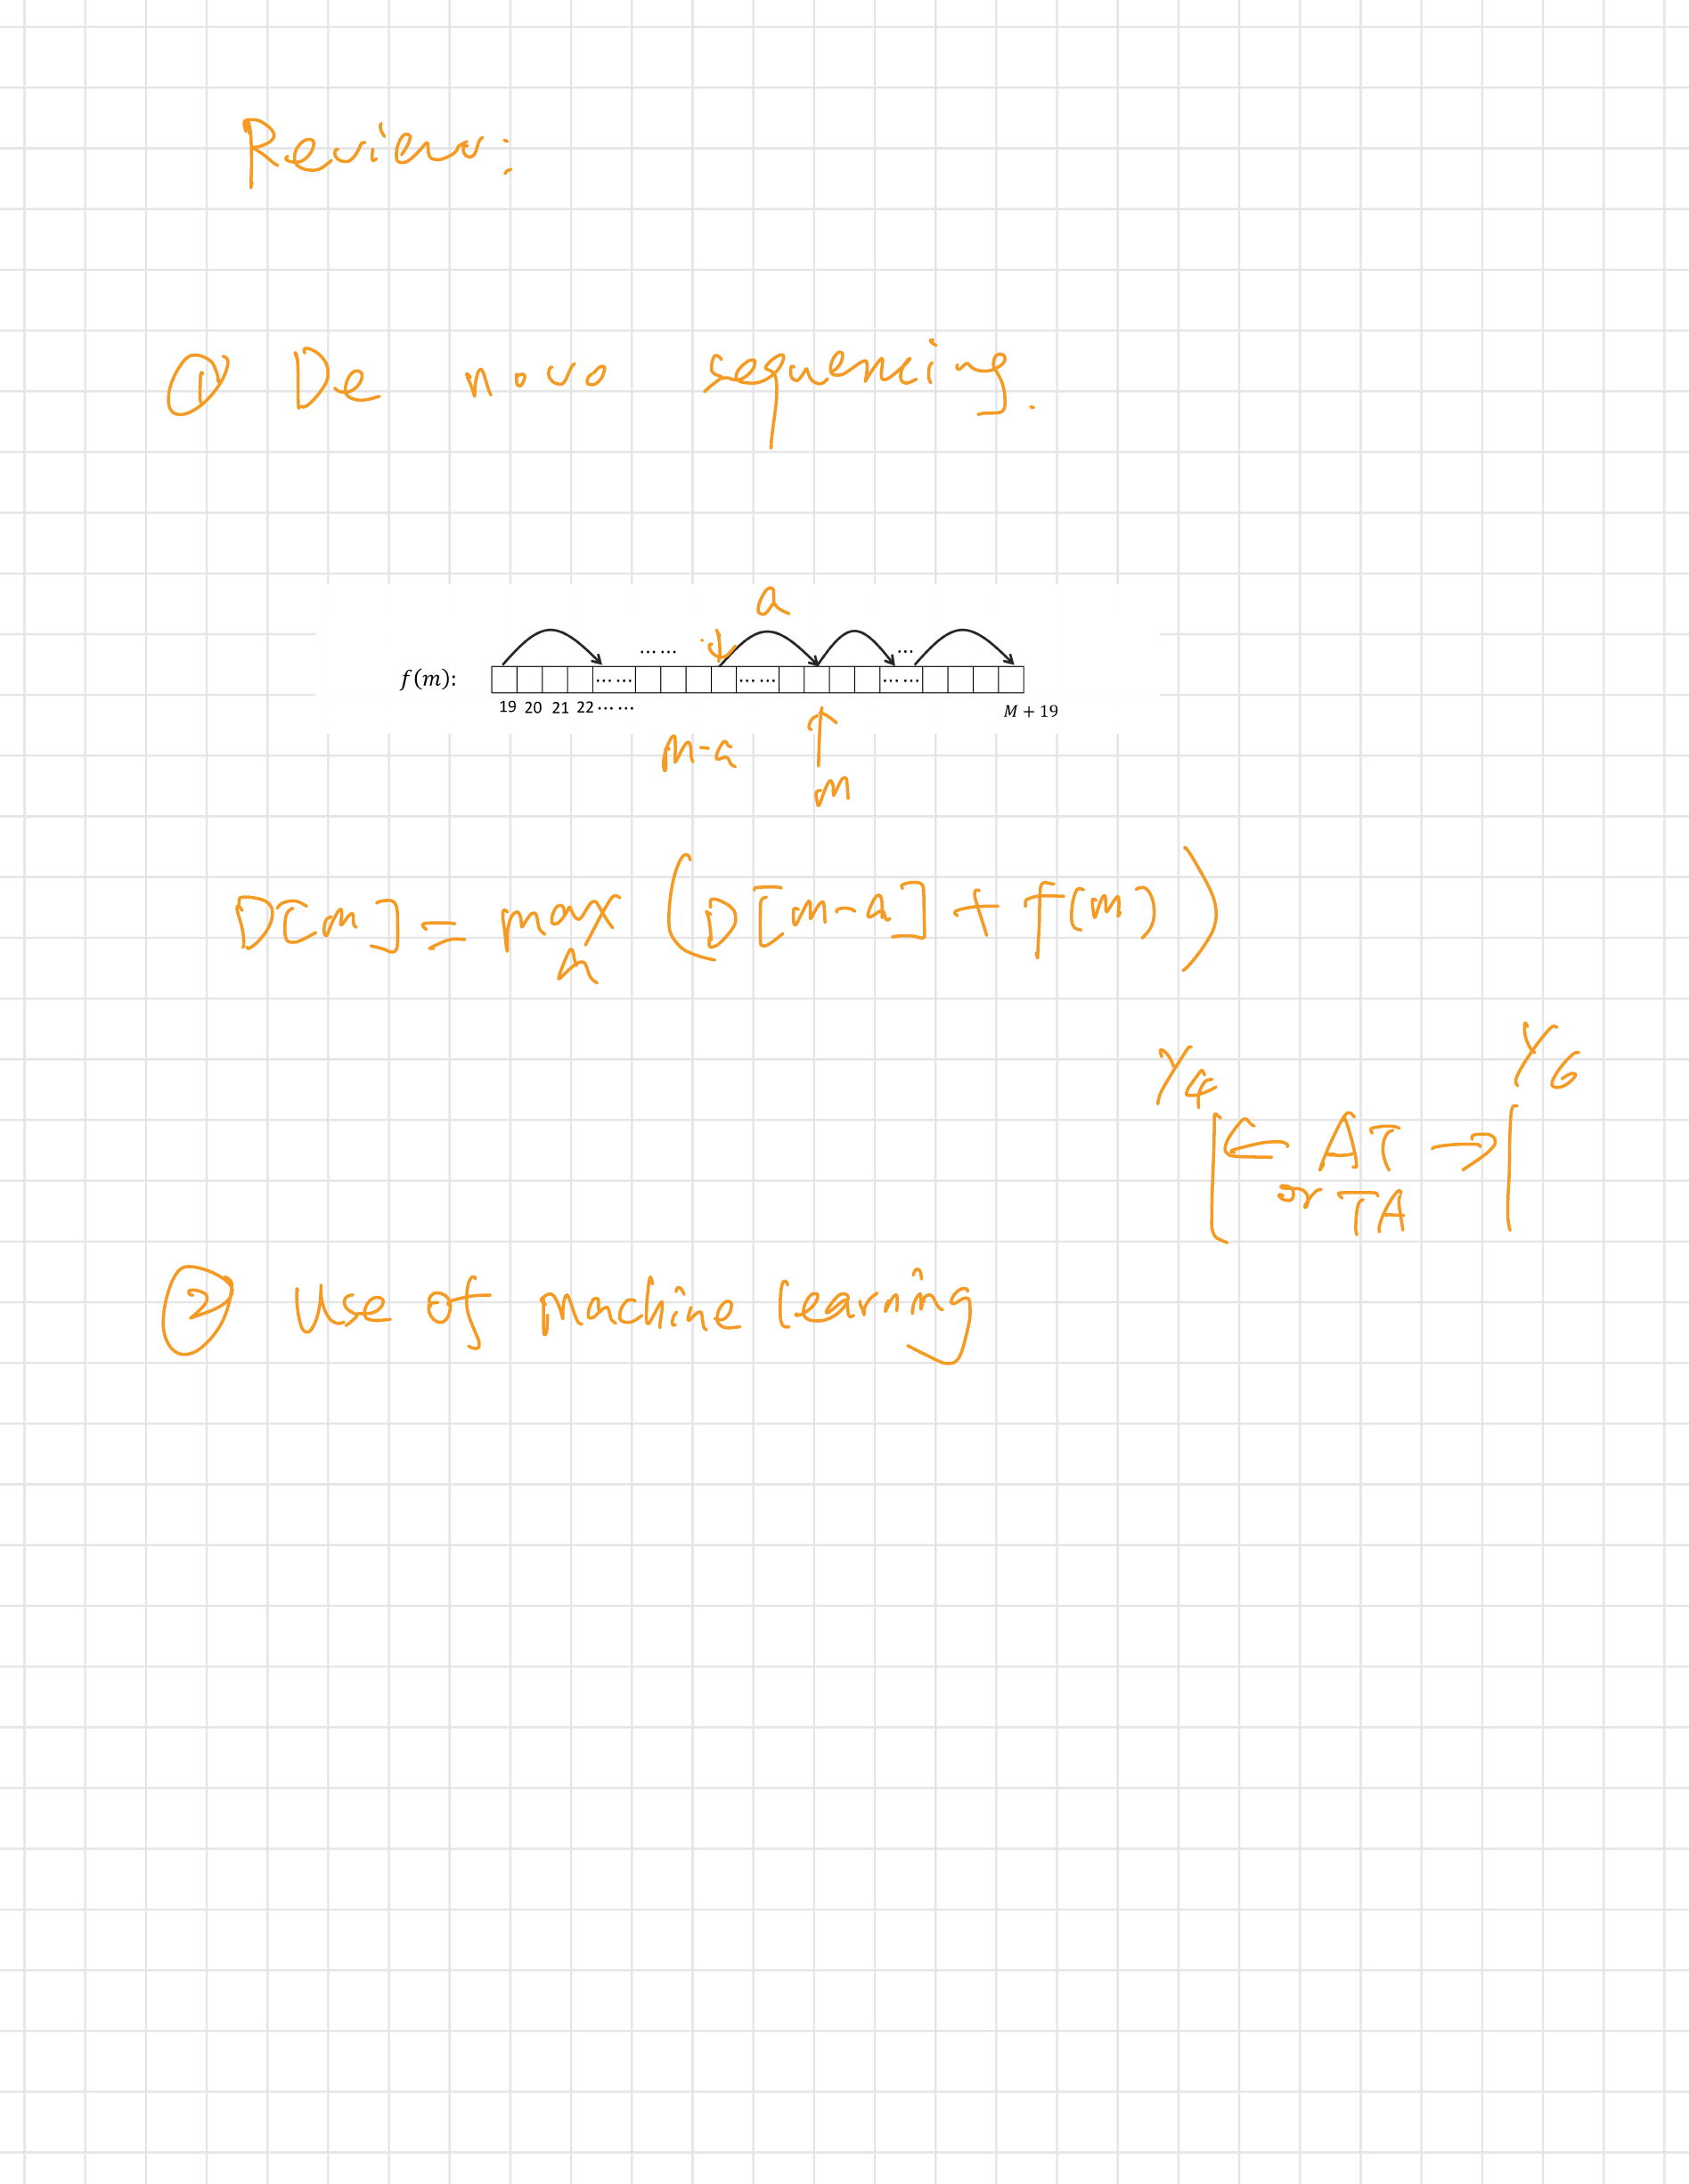 Review:
① De novo sequencing.
a
...... ...
f(m): ...... ...... ......
19 20 21 22 ...... M + 19
m-a
m
D[m] = max (D[m-a] + f(m))
a
y4 y6
← AT →
or TA
② Use of machine learning